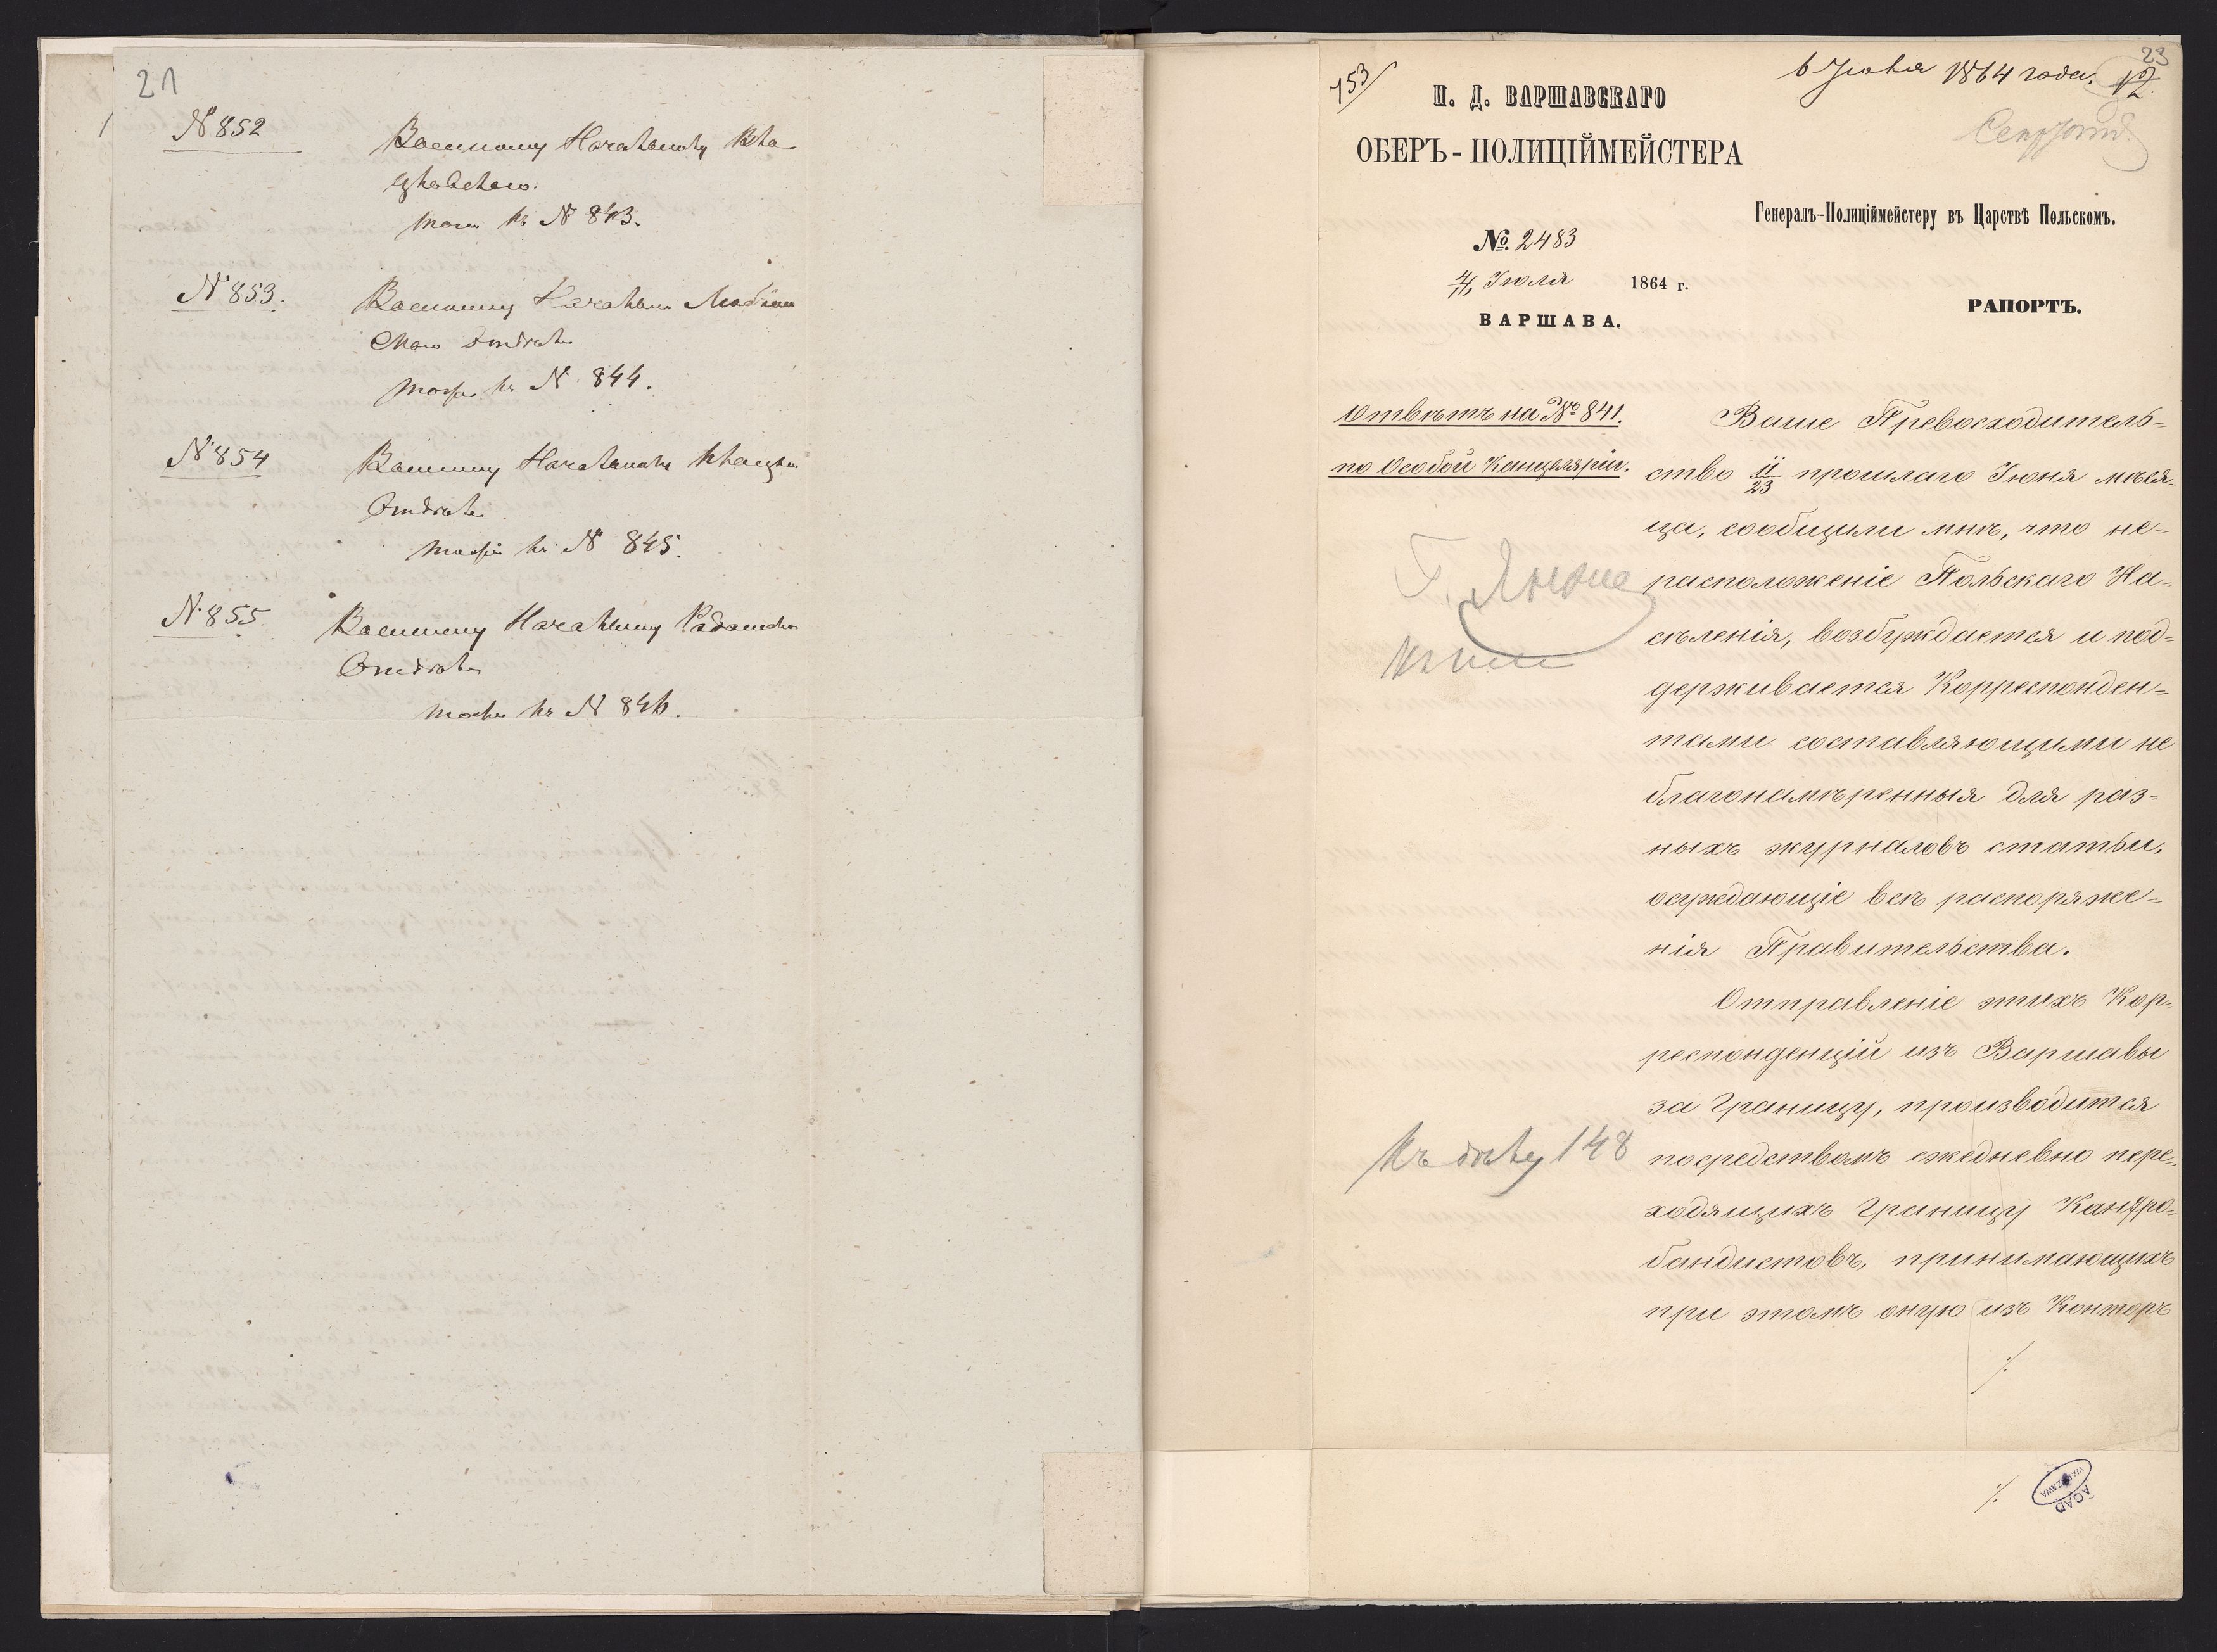 21
№ 852
Военному Начальнику Вла
цлавскаго.
тоже къ № 843.
№ 853.
Военному Начальн
скаго Отдѣла
тоже къ № 844.
№ 854
Военному Начальнику
Отдѣла
тоже къ № 845.
№ 855
Военному Начальнику Радомска
Отдѣла
тоже къ № 846.
153/
6 Іюля 1864 года.
23
12.
И. Д. ВАРШАВСКАГО
ОБЕРЪ-ПОЛИЦІЙМЕЙСТЕРА
Генералъ-Полиціймейстеру въ Царствѣ Польскомъ.
№. 2483
4/16 Іюля 1864 г.
ВАРШАВА.
РАПОРТЪ.
Отвѣтъ на № 841.
по Особой Канцеляріи.
Ваше Превосходитель=
ство 11/23 прошлаго Іюня мѣся=
ца, сообщили мнѣ, что не=
расположеніе Польскаго На=
селенія, возбуждается и под=
держивается Корреспонден=
тами составляющими не
благонамѣренныя для раз=
ныхъ журналовъ статьи,
осуждающіе всѣ распоряже=
нія Правительства.
Отправленіе этихъ Кор=
респонденцій изъ Варшавы
за границу, производится
посредствомъ ежедневно пере=
ходящихъ границу Контро=
бандистовъ, принимающихъ
при этомъ оную изъ Конторъ
Къ дѣлу 148
./.
./.
AGAD
WARSZAWA